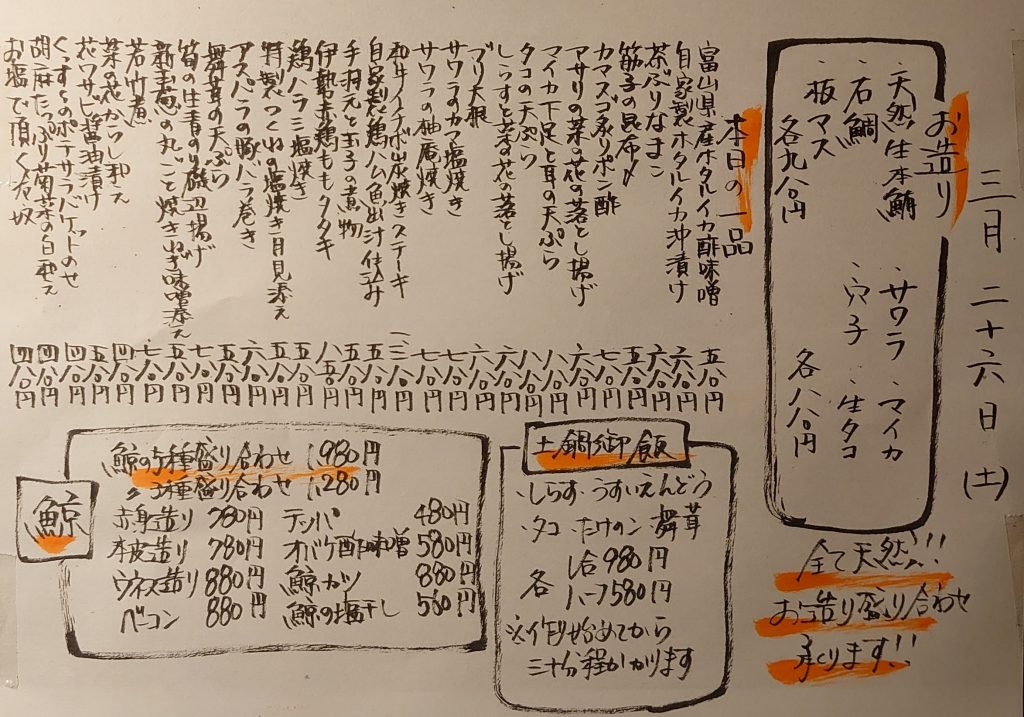 三月二十六日(土)
お造り
・天然生本鮪 ・サワラ ・マイカ
・石鯛 ・穴子 ・生タコ
・板マス
各九八〇円 各八八〇円
全て天然!!
お造り盛り合わせ
承ります!!
本日の一品
富山県産ホタルイカ酢味噌 五八〇円
自家製ホタルイカ沖漬け 六八〇円
茶ぶりなまこ 六八〇円
筋子の昆布〆 五八〇円
カマスゴ炙りポン酢 七八〇円
アサリの菜の花の落とし揚げ 六八〇円
マイカ下足と耳の天ぷら 八八〇円
タコの天ぷら 八八〇円
しらすと菜の花の落とし揚げ 六八〇円
ブリ大根 六八〇円
サワラのカマ塩焼き 七八〇円
サワラの柚庵焼き 七八〇円
和牛イチボ炭焼きステーキ
自家製鶏ハム魚出汁仕込み 五八〇円
手羽元と玉子の煮物 五八〇円
伊勢赤鶏ももタタキ 八五〇円
鶏ハラミ塩焼き 五八〇円
特製つくねの塩焼き月見添え 五八〇円
アスパラの豚バラ巻き 六八〇円
舞茸の天ぷら 五八〇円
筍の生青のり磯辺揚げ 七八〇円
新玉葱の丸ごと焼きねぎ味噌添え 五八〇円
若竹煮 七八〇円
菜の花からし和え 四八〇円
花ワサビ醤油漬け 五八〇円
くっすんのポテサラバケットのせ 四八〇円
胡麻たっぷり菊菜の白和え 四八〇円
お塩で頂く冷奴 四八〇円
土鍋御飯
・しらす ・うすいえんどう
・タコ ・たけのこ ・舞茸
各 1合980円
ハーフ580円
※作り始めてから
三十分程かかります
鯨
鯨の5種盛り合わせ 1,980円
〃 3種盛り合わせ 1,280円
赤身造り 780円 テッパ 480円
本皮造り 780円 オバケ酢味噌 580円
ウネス造り 880円 鯨カツ 880円
ベーコン 880円 鯨の塩干し 560円